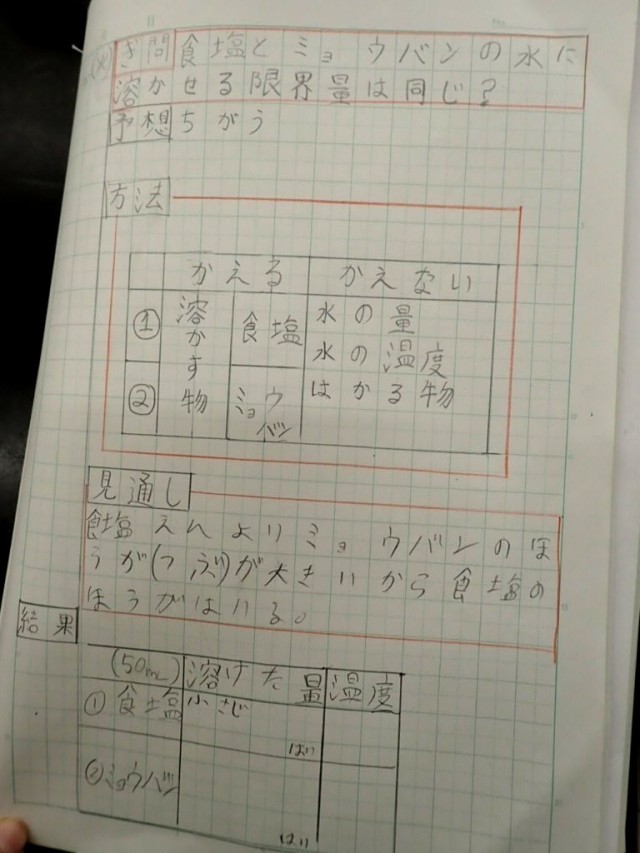 ぎ問 食塩とミョウバンの水に
溶かせる限界量は同じ?
予想 ちがう
方法
かえる かえない
① 溶かす物 食塩 水の量
水の温度
② ミョウバン はかる物
見通し
食塩えんよりミョウバンのほ
うが(つぶ)が大きいから食塩の
ほうがはいる。
結果
(50mL) 溶けた量 温度
①食塩 小さじ
はい
②ミョウバン
はい